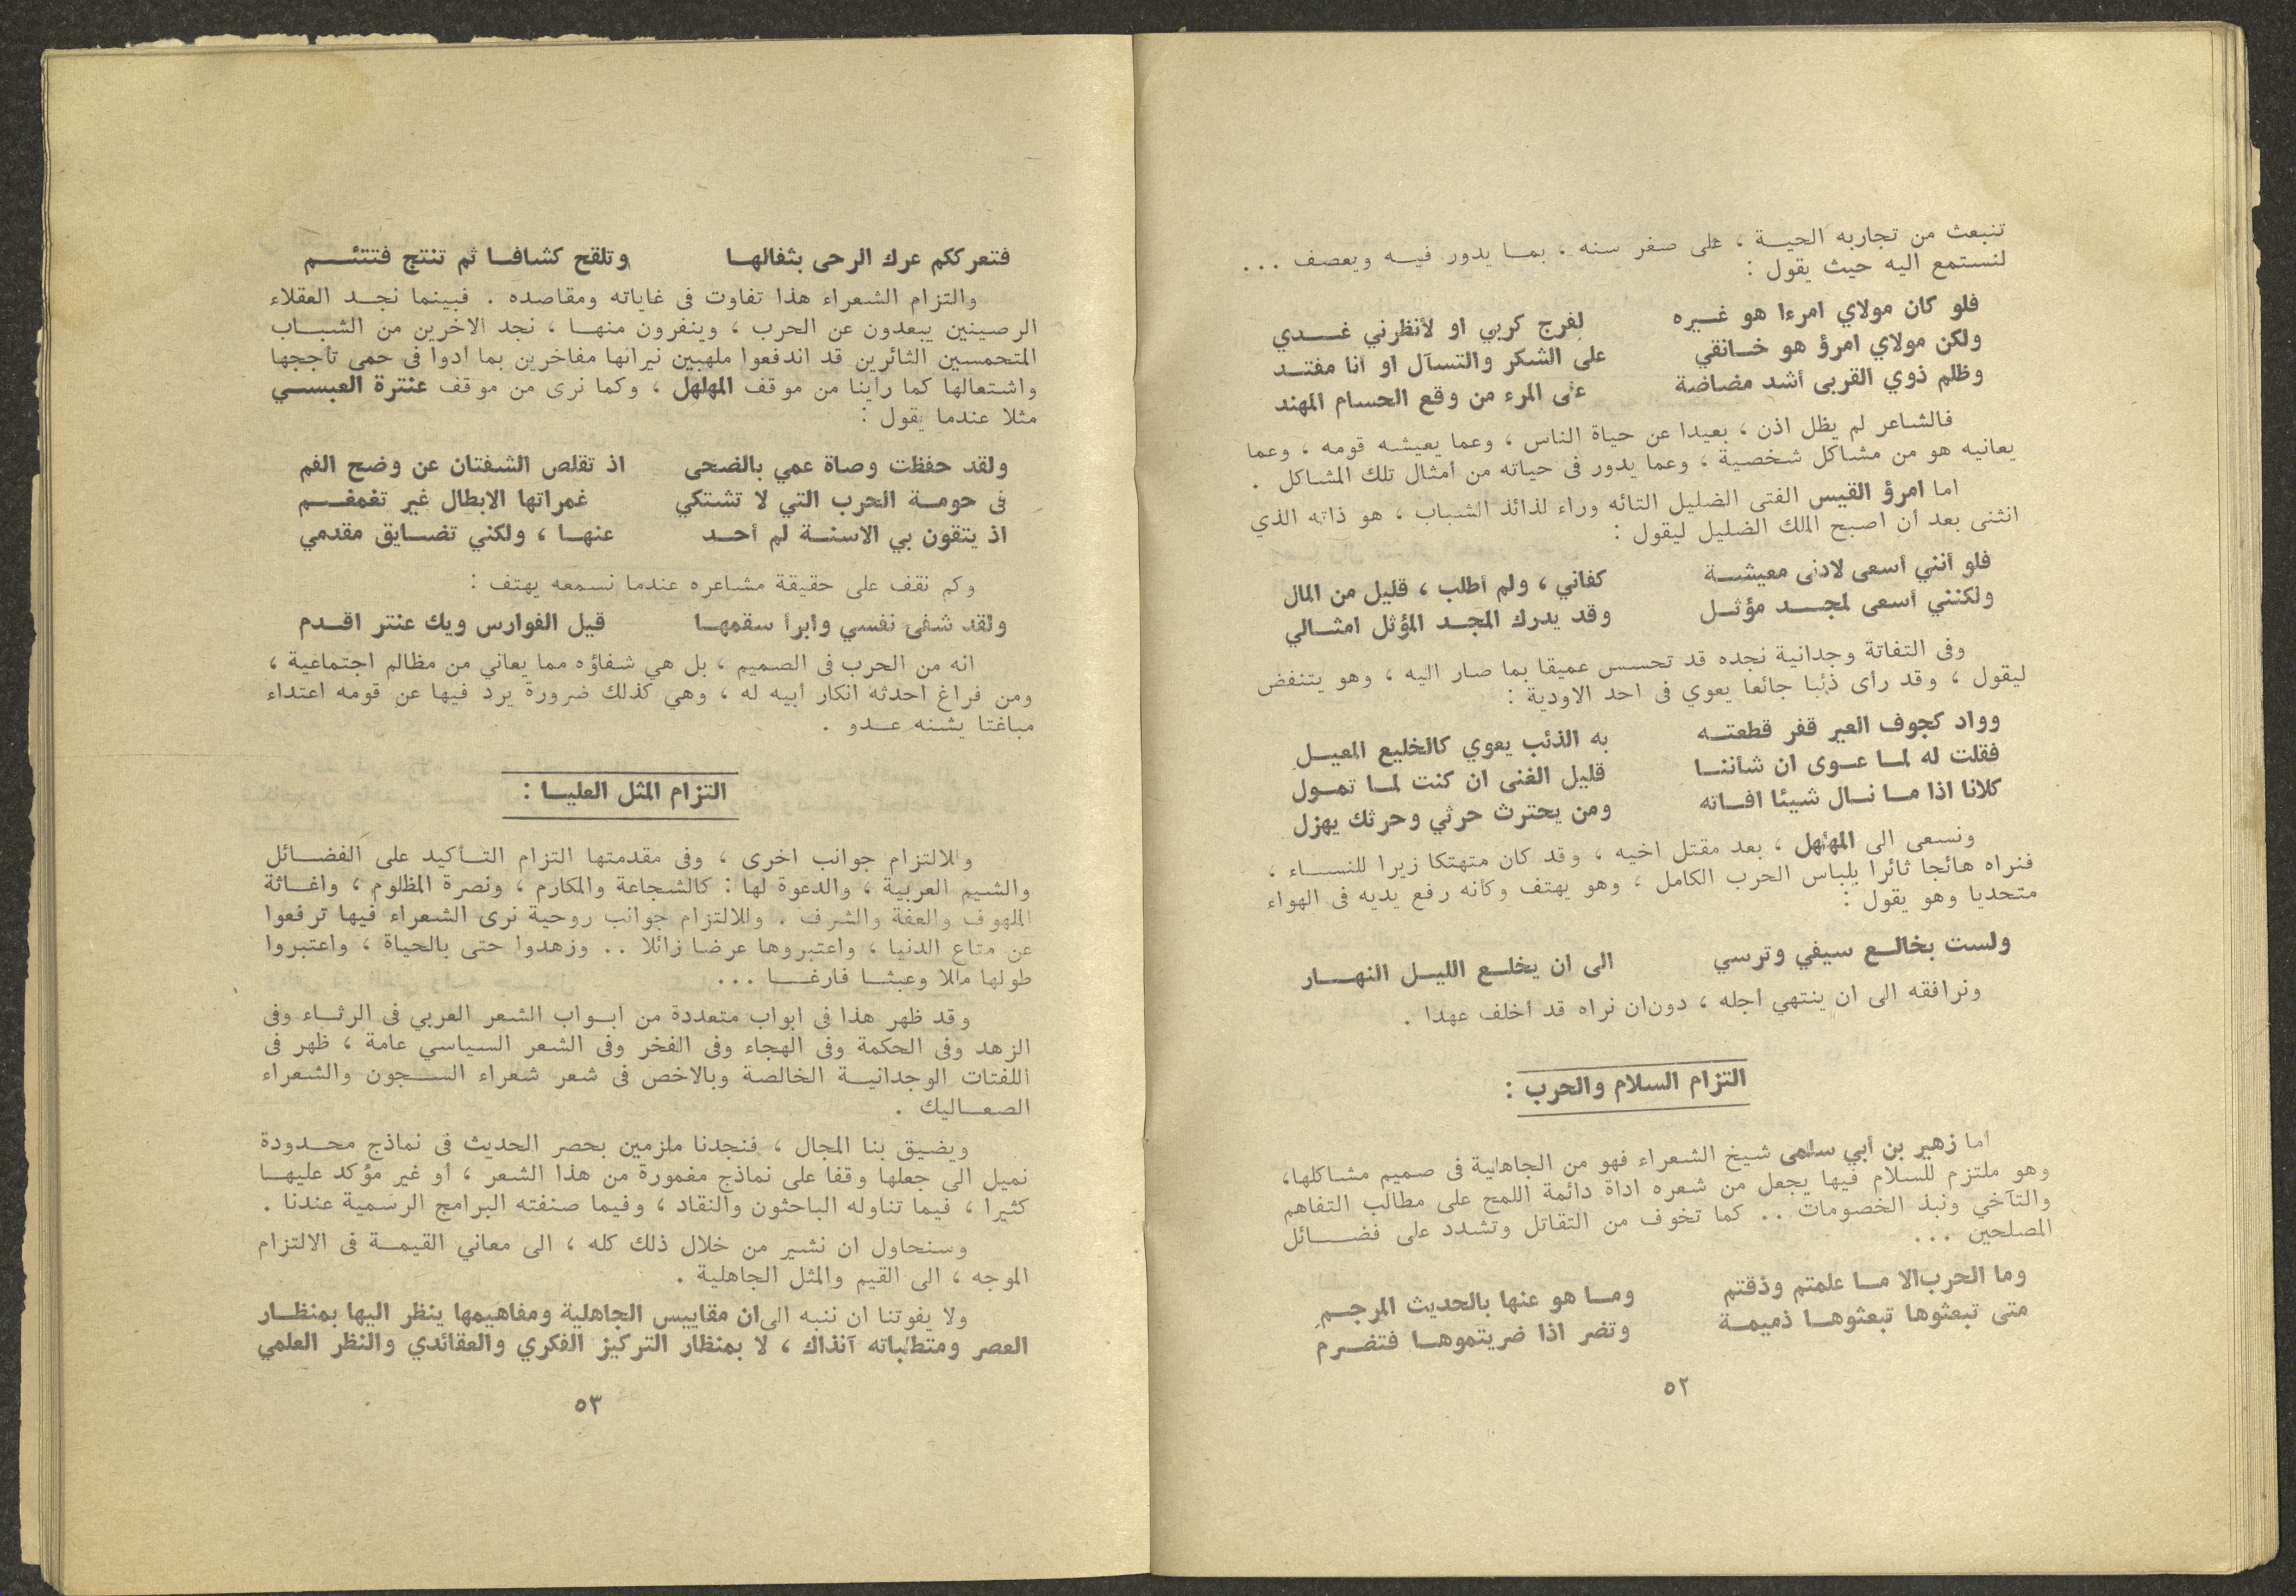 تنبعث من تجاربه الحية ، على صغر سنه . بما يدور فيه ويعصف ...
لنستمع اليه حيث يقول :
فلو كان مولاي امرءا هو غيره لفرج كربي او لأنظرني غدي
ولكن مولاي امرؤ هو خانقي على الشكر والتسآل او أنا مفتد
وظلم ذوي القربى أشد مضاضة على المرء من وقع الحسام المهند
فالشاعر لم يظل اذن ، بعيدا عن حياة الناس ، وعما يعيشه قومه ، وعما
يعانيه هو من مشاكل شخصية ، وعما يدور فى حياته من أمثال تلك المشاكل .
اما امرؤ القيس الفتى الضليل التائه وراء لذائذ الشباب ، هو ذاته الذي
انثنى بعد أن أصبح الملك الضليل ليقول :
فلو أنني أسعى لادنى معيشة كفاني ، ولم أطلب ، قليل من المال
ولكنني أسعى لمجد مؤثل وقد يدرك المجد المؤثل امثالي
وفى التفاتة وجدانية نجده قد تحسس عميقا بما صار اليه ، وهو يتنفض
ليقول ، وقد رأى ذئبا جائعا يعوي فى احد الاودية :
وواد كجوف العير قفر قطعته به الذئب يعوي كالخليع المعيل
فقلت له لما عوى ان شأننا قليل الغنى ان كنت لما تمول
كلانا اذا ما نال شيئا افاته ومن يحترث حرثي وحرثك يهزل
ونسعى الى المهلهل ، بعد مقتل اخيه ، وقد كان متهتكا زيرا للنساء ،
فنراه هائجا ثائرا بلباس الحرب الكامل ، وهو يهتف وكأنه رفع يديه فى الهواء
متحديا وهو يقول :
ولست بخالع سيفي وترسي الى ان يخلع الليل النهار
ونرافقه الى ان ينتهي أجله ، دون ان نراه قد أخلف عهدا .
التزام السلام والحرب :
أما زهير بن أبي سلمى شيخ الشعراء فهو من الجاهلية فى صميم مشاكلها،
وهو ملتزم للسلام فيها يجعل من شعره اداة دائمة اللمح على مطالب التفاهم
والتآخي ونبذ الخصومات .. كما تخوف من التقاتل وتشدد على فضائل
المصلحين ...
وما الحرب الا ما علمتم وذقتم وما هو عنها بالحديث المرجم
متى تبعثوها تبعثوها ذميمة وتضر اذا ضريتموها فتضرم
٥٢
فتعرككم عرك الرحى بثفالها وتلقح كشافا ثم تنتج فتتئم
والتزام الشعراء هذا تفاوت فى غاياته ومقاصده . فبينما نجد العقلاء
الرصينين يبعدون عن الحرب ، وينفرون منها ، نجد الآخرين من الشباب
المتحمسين الثائرين قد اندفعوا ملهبين نيرانها مفاخرين بما أدوا فى حمى تأججها
واشتعالها كما رأينا من موقف المهلهل ، وكما نرى من موقف عنترة العبسي
مثلا عندما يقول :
ولقد حفظت وصاة عمي بالضحى اذ تقلص الشفتان عن وضح الفم
فى حومة الحرب التي لا تشتكي غمراتها الابطال غير تغمغم
اذ يتقون بي الاسنة لم أحد عنها ، ولكني تضايق مقدمي
وكم نقف على حقيقة مشاعره عندما نسمعه يهتف :
ولقد شفى نفسي وأبرأ سقمها قيل الفوارس ويك عنتر اقدم
انه من الحرب فى الصميم ، بل هي شفاؤه مما يعاني من مظالم اجتماعية ،
ومن فراغ احدثه انكار أبيه له ، وهي كذلك ضرورة يرد فيها عن قومه اعتداء
مباغتا يشنه عدو .
التزام المثل العليا :
وللالتزام جوانب اخرى ، وفى مقدمتها التزام التأكيد على الفضائل
والشيم العربية ، والدعوة لها : كالشجاعة والمكارم ، ونصرة المظلوم ، واغاثة
الملهوف والعفة والشرف . وللالتزام جوانب روحية نرى الشعراء فيها ترفعوا
عن متاع الدنيا ، واعتبروها عرضا زائلا .. وزهدوا حتى بالحياة ، واعتبروا
طولها مللا وعبثا فارغا ...
وقد ظهر هذا فى ابواب متعددة من أبواب الشعر العربي فى الرثاء وفى
الزهد وفى الحكمة وفى الهجاء وفى الفخر وفى الشعر السياسي عامة ، ظهر فى
اللفتات الوجدانية الخالصة وبالاخص فى شعر شعراء السجون والشعراء
الصعاليك .
ويضيق بنا المجال ، فنجدنا ملزمين بحصر الحديث فى نماذج محدودة
نميل الى جعلها وقفا على نماذج مغمورة من هذا الشعر ، أو غير مؤكد عليها
كثيرا ، فيما تناوله الباحثون والنقاد ، وفيما صنفته البرامج الرسمية عندنا .
وسنحاول ان نشير من خلال ذلك كله ، الى معاني القيمة فى الالتزام
الموجه ، الى القيم والمثل الجاهلية .
ولا يفوتنا ان ننبه الى ان مقاييس الجاهلية ومفاهيمها ينظر اليها بمنظار
العصر ومتطلباته آنذاك ، لا بمنظار التركيز الفكري والعقائدي والنظر العلمي
٥٣